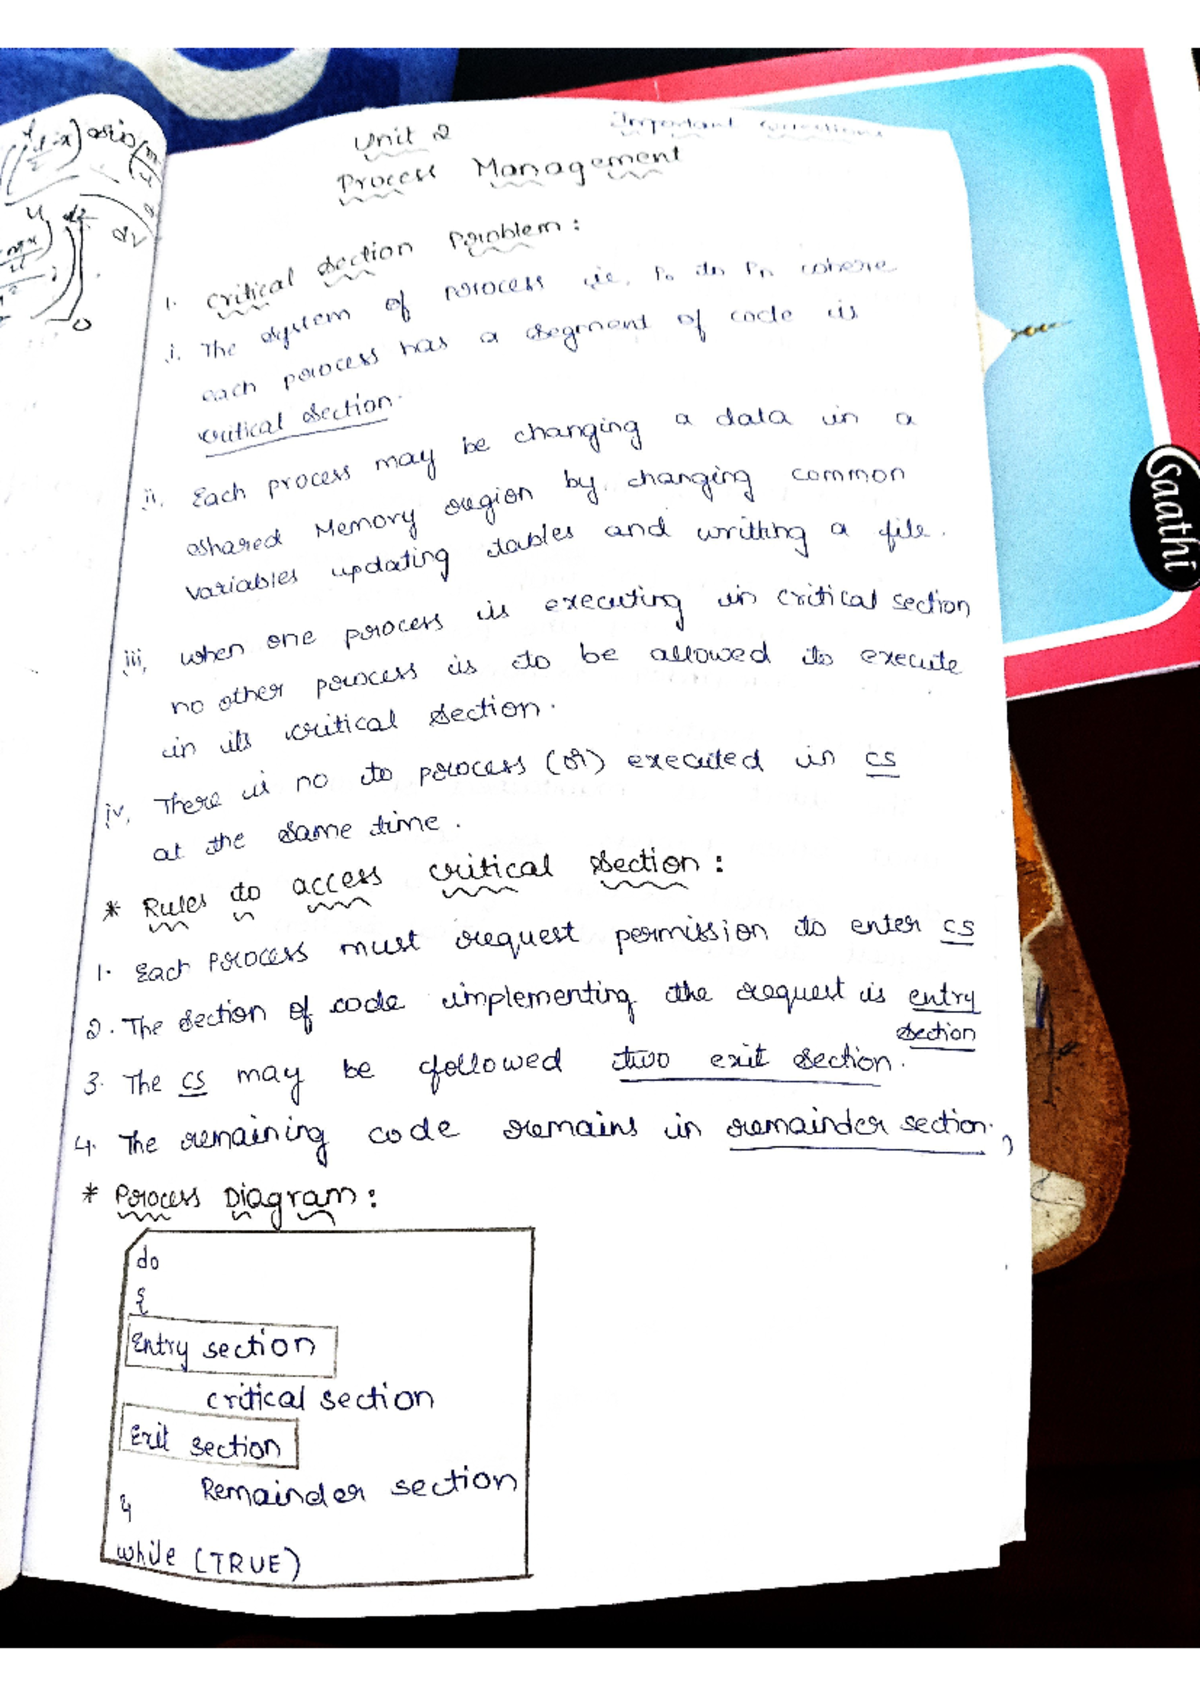 Unit 2
Important Questions
Process Management
1. Critical Section Problem:
i. The system of process i.e. P0 to Pn where
each process has a segment of code is
critical section.
ii. Each process may be changing a data in a
shared Memory region by changing common
variables updating tables and writting a file.
iii, when one process is executing in critical section
no other process is to be allowed to execute
in its critical section.
iv. There is no to process (or) executed in cs
at the same time.
* Rules to access critical section:
1. Each Process must request permission to enter cs
2. The section of code implementing the request is entry
section
3. The cs may be followed two exit section.
4. The remaining code remains in remainder section.
* Process Diagram:
do
{
Entry section
critical section
Exit section
Remainder section
}
while (TRUE)
Saathi